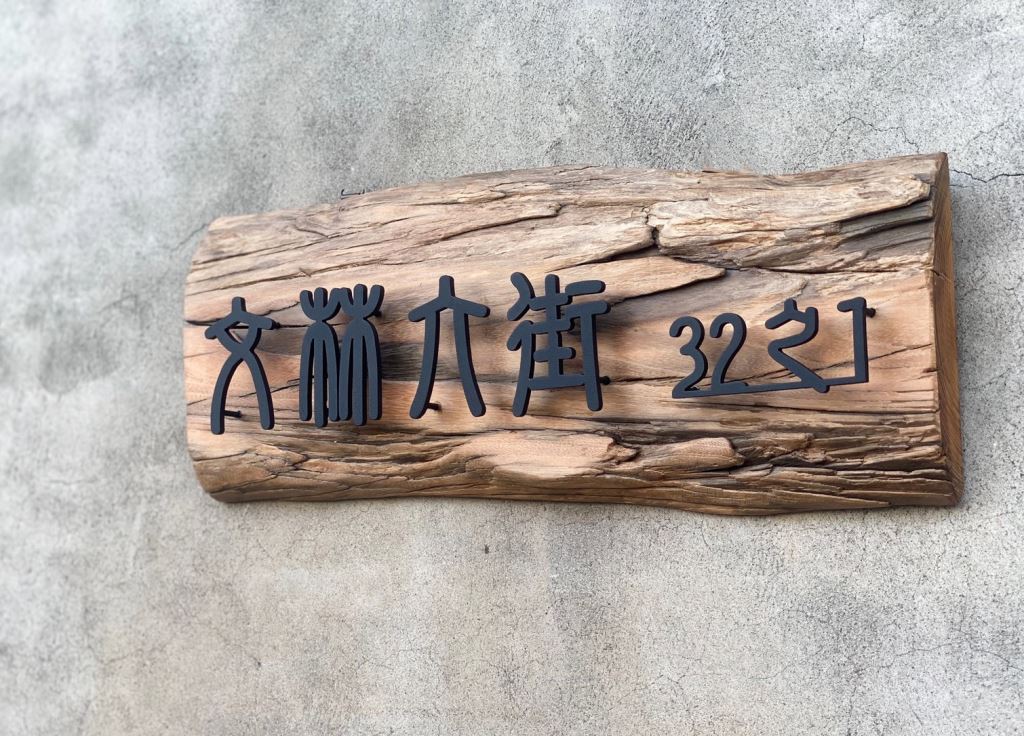 文林大街 32之1